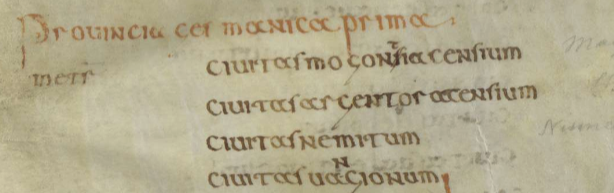 Provincia germanica prima.
metr civitas mogontiacensium
civitas argentoracensium
civitas nemitum
civitas vangionum